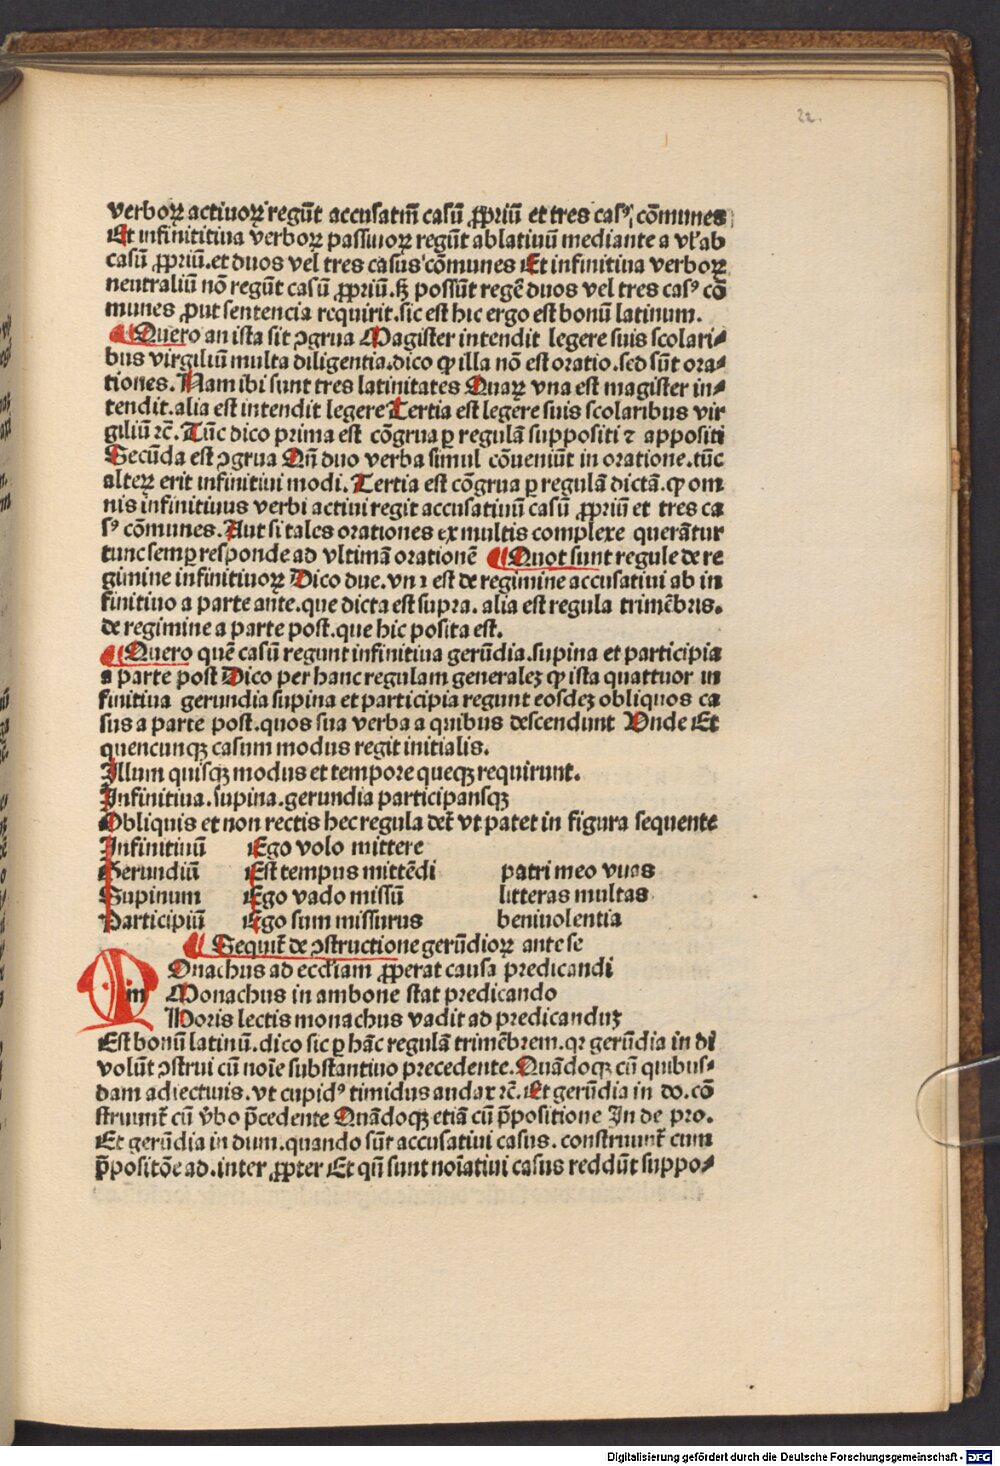 22.
verboꝝ actiuoꝝ regūt accusatiū casū ꝓpriū et tres casꝰ cōmunes
Et infinititiua verboꝝ passiuoꝝ regūt ablatiuū mediante a vl̓ ab
casū ꝓpriū.et duos vel tres casus cōmunes Et infinitiua verboꝝ
neutraliū nō regūt casū ꝓpriū.sꝫ possūt regē duos vel tres casꝰ cō
munes ꝓut sentencia requirit.sic est hic ergo est bonū latinum.
¶ Quero an ista sit ꝯgrua Magister intendit legere suis scolari⸗
bus virgiliū multa diligentia.dico ꝙ illa nō est oratio.sed sūt ora⸗
tiones. Nam ibi sunt tres latinitates Quaꝝ vna est magister in⸗
tendit.alia est intendit legere Tertia est legere suis scolaribus vir
giliū ⁊c̄. Tūc dico prima est cōgrua ꝑ regulā suppositi ⁊ appositi
Secūda est ꝯgrua Qn̄ duo verba simul cōueniūt in oratione.tūc
alteꝝ erit infinitiui modi. Tertia est cōgrua ꝑ regulā dictā.ꝙ om
nis infinitiuus verbi actiui regit accusatiuū casū ꝓpriū et tres ca
sꝰ cōmunes. Aut si tales orationes ex multis complexe querātur
tunc semꝑ responde ad vltimā orationē ¶ Quot sunt regule de re
gimine infinitiuoꝝ Dico due.vna est de regimine accusatiui ab in
finitiuo a parte ante.que dicta est supra. alia est regula trimēbris.
de regimine a parte post.que hic posita est.
¶ Quero quē casū regunt infinitiua gerūdia.supina et participia
a parte post Dico per hanc regulam generaleꝫ ꝙ ista quattuor in
finitiua gerundia supina et participia regunt eosdeꝫ obliquos ca
sus a parte post.quos sua verba a quibus descendunt Vnde Et
quencunqꝫ casum modus regit initialis.
Illum quisqꝫ modus et tempore queqꝫ requirunt.
Infinitiua.supina.gerundia participansqꝫ
Obliquis et non rectis hec regula det̄ vt patet in figura sequente
Infinitiuū Ego volo mittere
Gerundiū Est tempus mittēdi patri meo vuas
Supinum Ego vado missū litteras multas
Participiū Ego sum missurus beniuolentia
¶ Sequit̄ de ꝯstructione gerūdioꝝ ante se
m Onachus ad eccl̄iam ꝓperat causa predicandi
Monachus in ambone stat predicando
Horis lectis monachus vadit ad predicanduꝫ
Est bonū latinū.dico sic ꝑ hāc regulā trimēbrem.qꝛ gerūdia in di
volūt ꝯstrui cū noīe substantiuo precedente.Quādoqꝫ cū quibus⸗
dam adiectiuis.vt cupidꝰ timidus audax ⁊c̄. Et gerūdia in do.cō
struunt̄ cū v̄bo p̄cedente Quādoqꝫ etiā cū p̄positione In de pro.
Et gerūdia in dum.quando sūt accusatiui casus. construunt̄ cum
p̄positōe ad.inter ꝓpter Et qn̄ sunt noīatiui casus reddūt suppo⸗
Digitalisierung gefördert durch die Deutsche Forschungsgemeinschaft - DFG